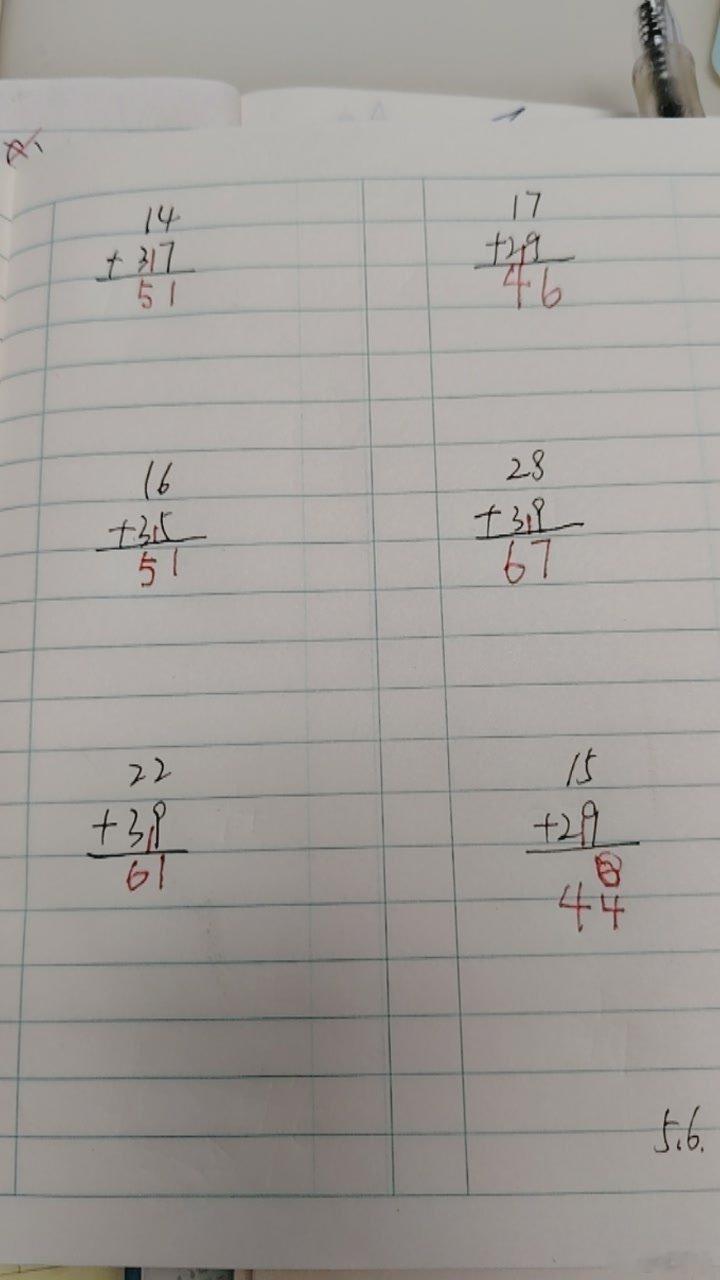 14
+37
51
17
+29
46
16
+35
51
28
+39
67
22
+39
61
15
+29
44
5.6.